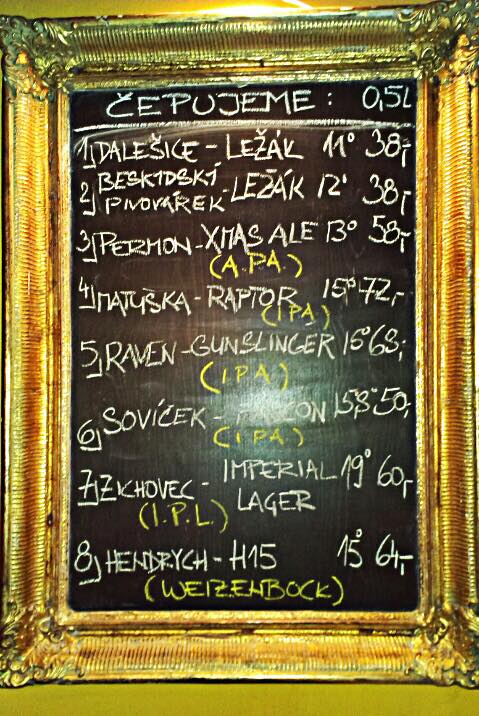 ČEPUJEME: 0,5l
1) DALEŠICE - LEŽÁK 11° 38,-
2) BESKIDSKÝ PIVOVÁREK - LEŽÁK 12° 38,-
3) PERMON - XMAS ALE 13° 58,-
(A.P.A.)
4) MATUŠKA - RAPTOR 15° 72,-
(IPA)
5) RAVEN - GUNSLINGER 15° 63,-
(IPA)
6) SOVÍČEK - 50,-
(IPA)
7) ZICHOVEC - IMPERIAL LAGER 19° 60,-
(I.P.L.)
8) HENDRYCH - H15 15° 64,-
(WEIZENBOCK)